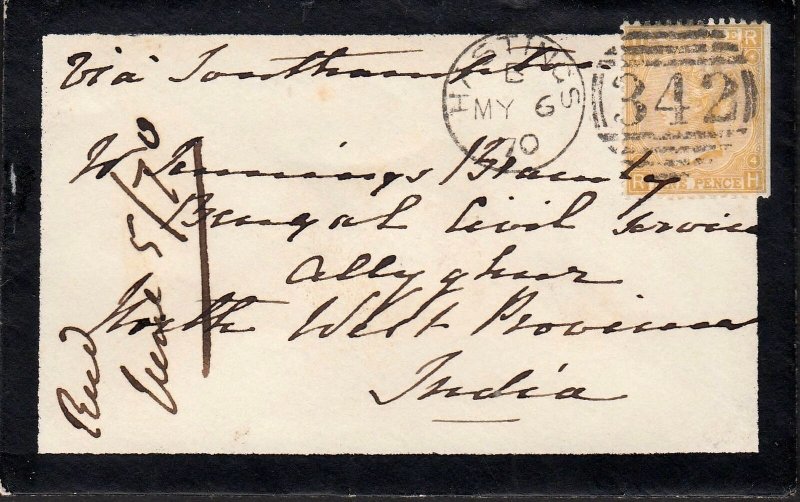 Via Southampton
HASTINGS
B
MY 6
70
342
R H
4
NINE PENCE
W Jennings Bramly
Bengal Civil Service
Allyghur
North West Provinces
India
Recd
June 5/70